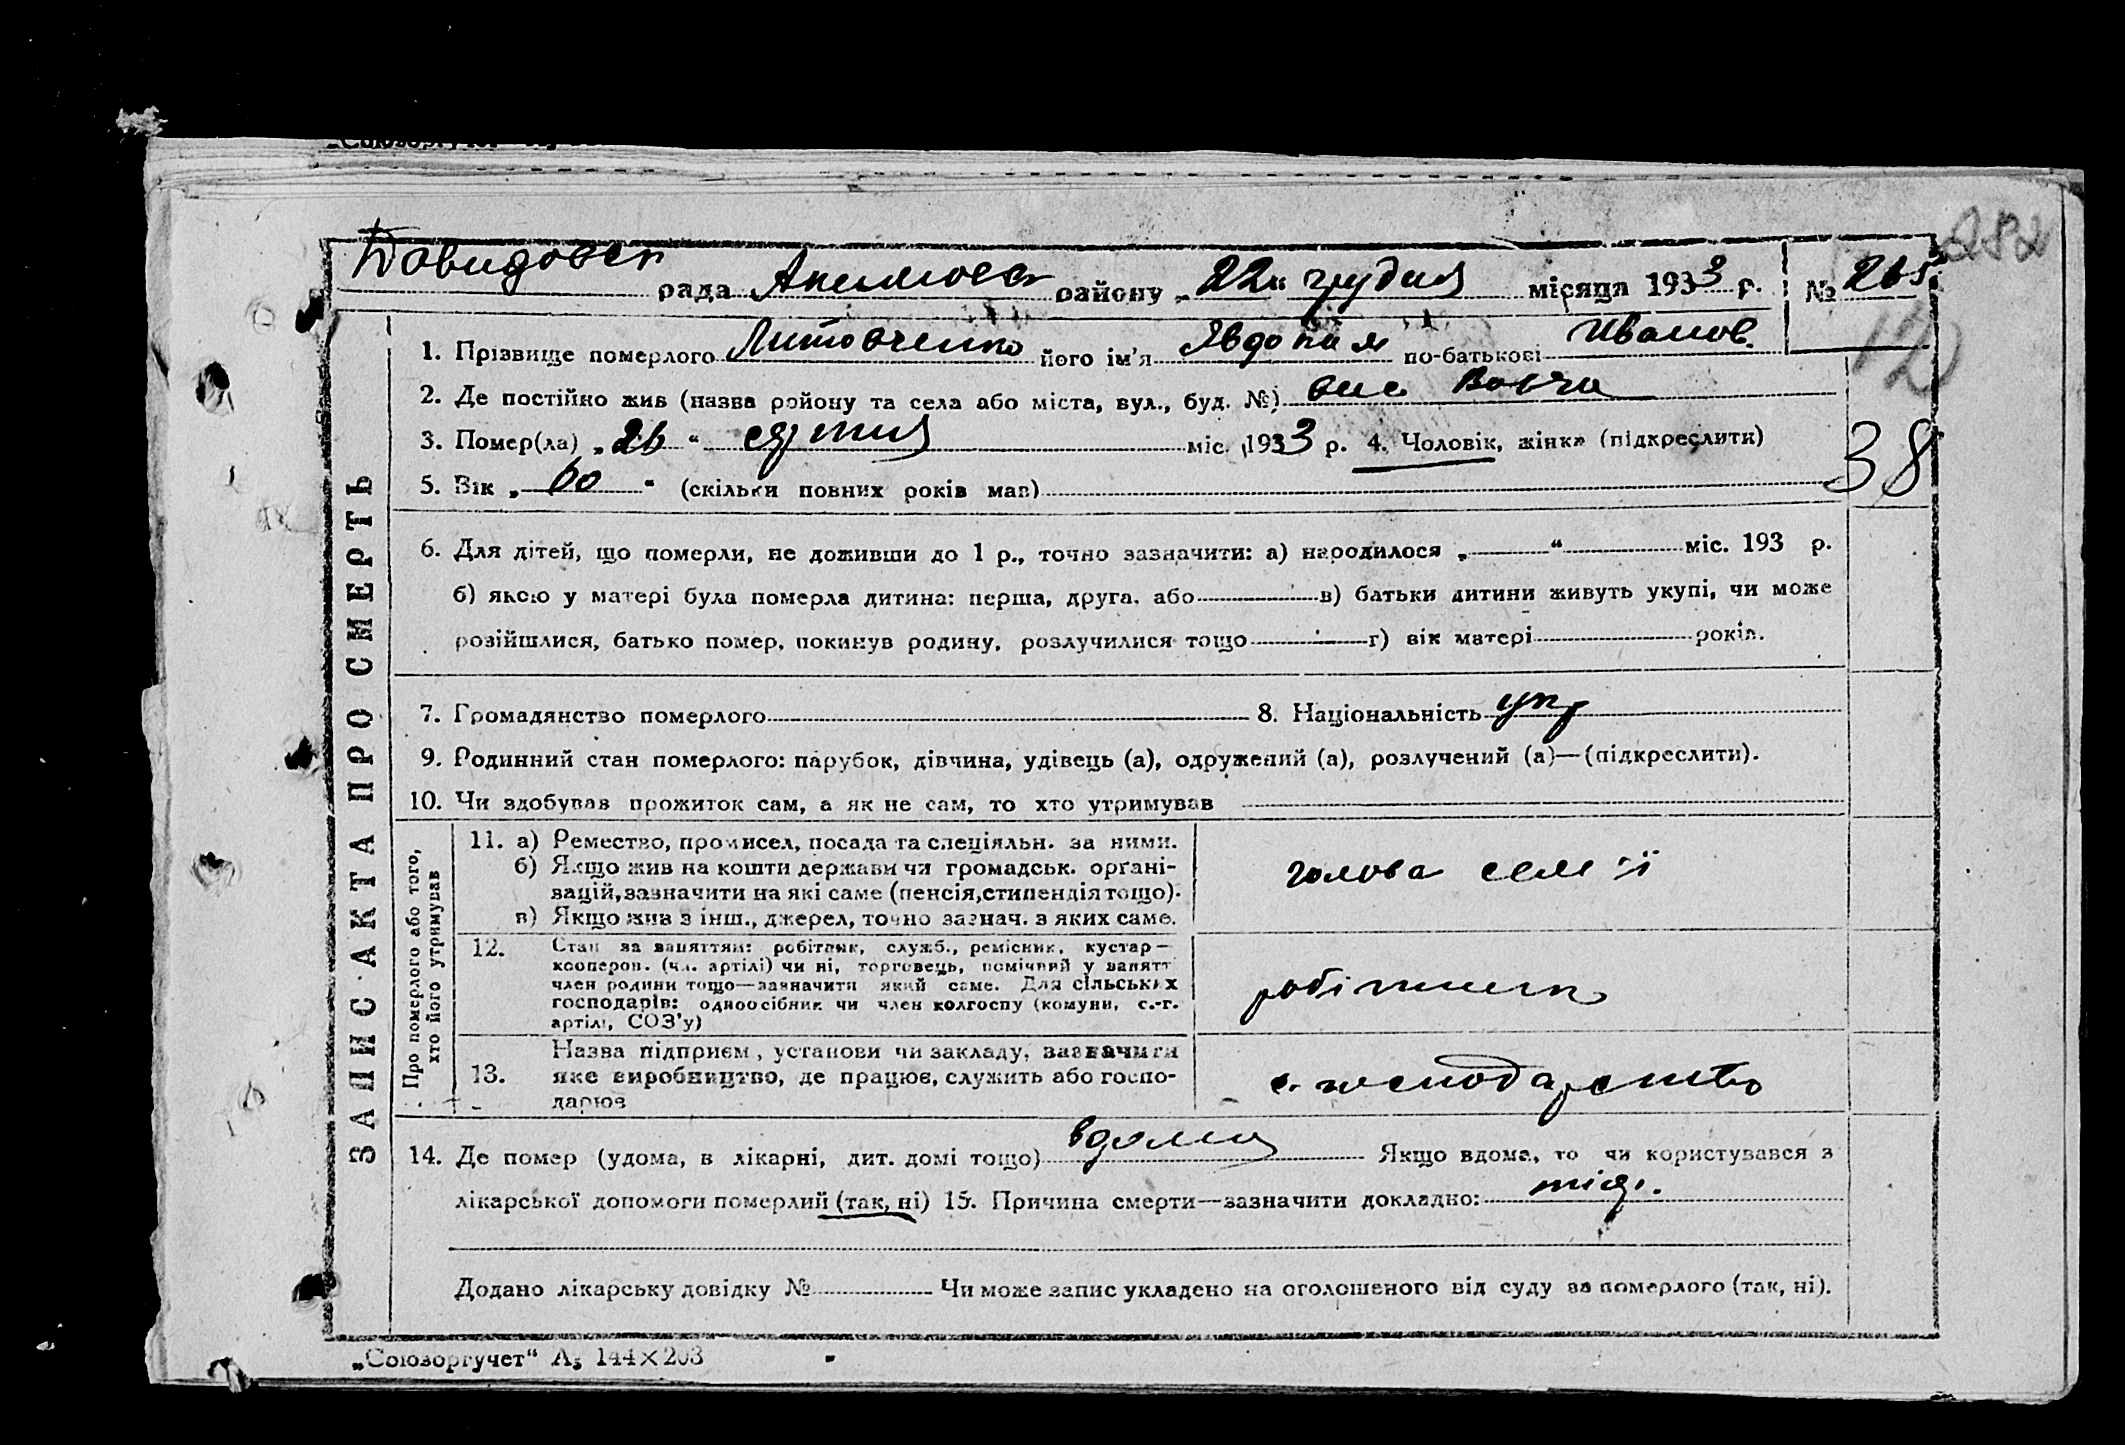 282
Давидовск рада Акимовск району „22" грудня місяця 1933 р. № 265
12
1. Прізвище померлого Литовченко його ім'я Явдокия по-батькові Иванов.
2. Де постійно жив (назва району та села або міста, вул., буд. №)
3. Помер(ла) „26" серпня міс. 1933 р. 4. Чоловік, жінка (підкреслити)
38
5. Вік „60" (скільки повних років мав)
6. Для дітей, що померли, не доживши до 1 р., точно зазначити: а) народилося „ " міс. 193 р.
б) якою у матері була померла дитина: перша, друга, або в) батьки дитини живуть укупі, чи може
розійшлися, батько помер, покинув родину, розлучилися тощо г) вік матері років.
7. Громадянство померлого 8. Національність укр
9. Родинний стан померлого: парубок, дівчина, удівець (а), одружений (а), розлучений (а)—(підкреслити).
10. Чи здобував прожиток сам, а як не сам, то хто утримував
ЗАПИС АКТА ПРО СМЕРТЬ
Про померлого або того,
хто його утримував
11. а) Ремество, промисел, посада та спеціяльн. за ними.
б) Якщо жив на кошти держави чи громадськ. органі-
зацій, зазначити на які саме (пенсія, стипендія тощо).
в) Якщо жив з інш., джерел, точно зазнач. з яких саме.
голова сем'ї
12. Стан за заняттям: робітник, служб., ремісник, кустар—
кооперов. (чл. артілі) чи ні, торговець, помічний у занятт
член родини тощо—зазначити який саме. Для сільських
господарів: одноосібник чи член колгоспу (комуни, с.-г.
артілі, СОЗ'у)
робітник
13. Назва підприєм., установи чи закладу, зазначити
яке виробництво, де працює, служить або госпо-
дарює
с. господарство
14. Де помер (удома, в лікарні, дит. домі тощо) вдома Якщо вдома, то чи користувався з
лікарської допомоги померлий (так, ні) 15. Причина смерти—зазначити докладно:
Додано лікарську довідку № Чи може запис укладено на оголошеного від суду за померлого (так, ні).
„Союзоргучет" А5 144×203